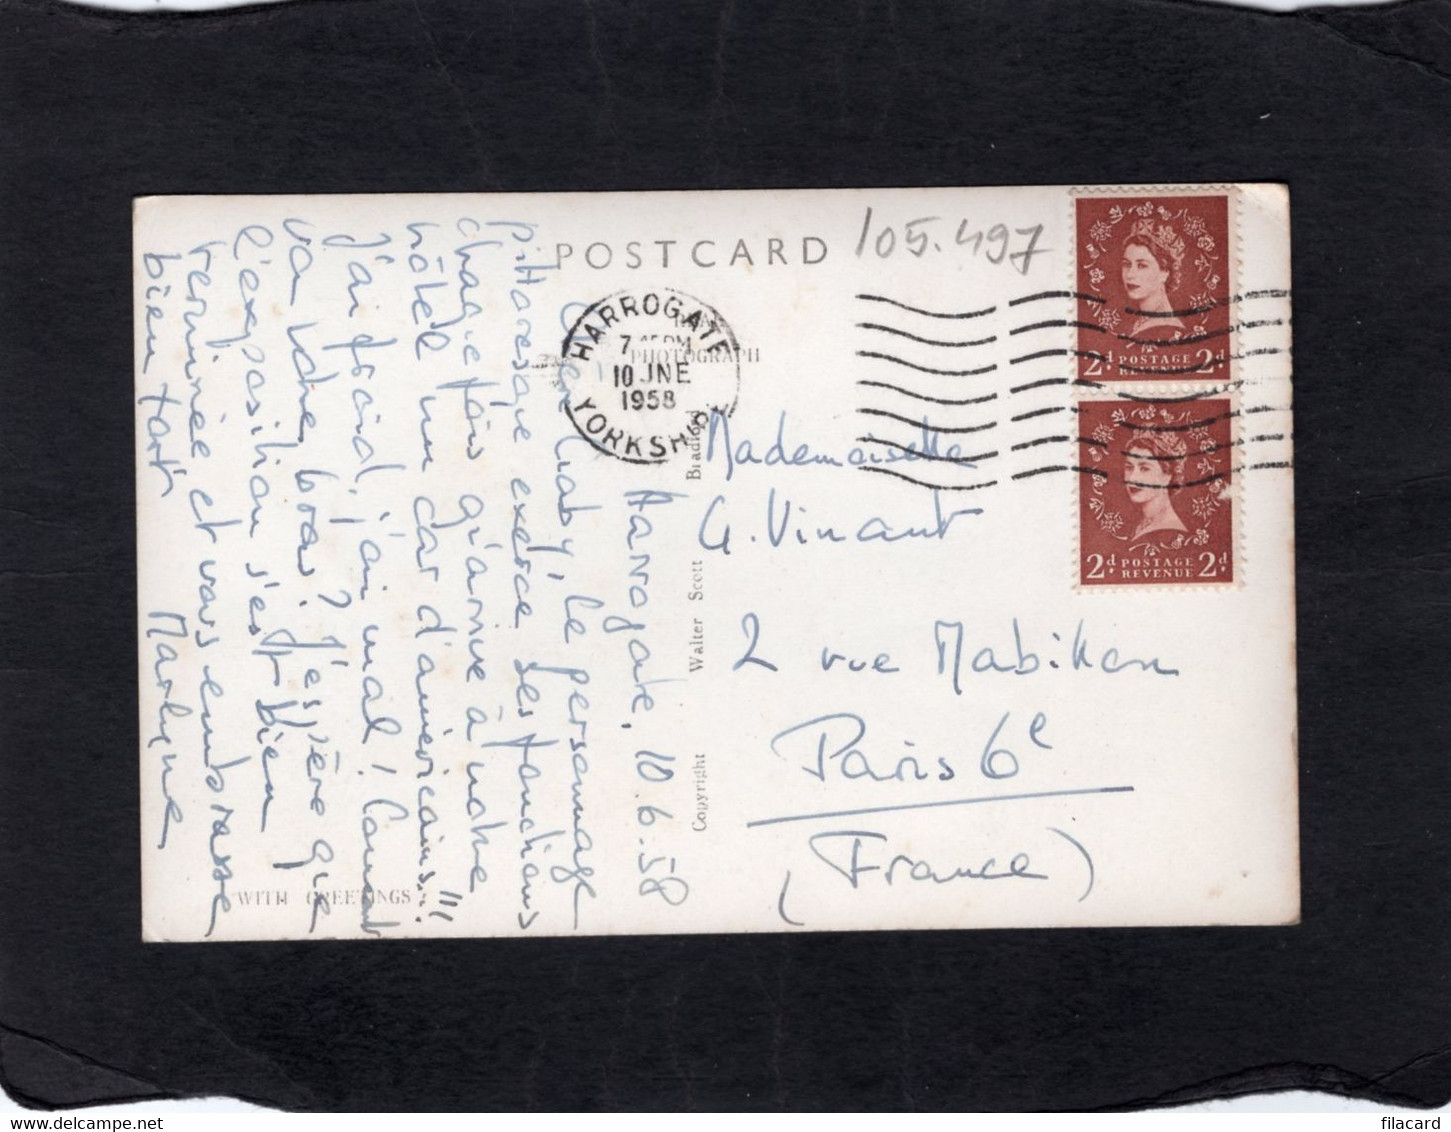 POSTCARD
105.497
HARROGATE
7 PM
10 JNE
1958
YORKSHIRE
PHOTOGRAPH
2d POSTAGE 2d
REVENUE
2d POSTAGE 2d
REVENUE
Copyright Walter Scott Bradford
WITH GREETINGS
Harrogate, 10.6.58
Chère Gaby, le personnage
pittoresque exerce ses fonctions
chaque fois qu'arrive à notre
hôtel un car d'américains!!!
J'ai froid, j'ai mal! Comment
va votre bras? J'espère que
l'exposition s'est bien
terminée et vous embrasse
bien fort
Marlyne
Mademoiselle
G. Vinant
2 rue Mabillon
Paris 6e
(France)